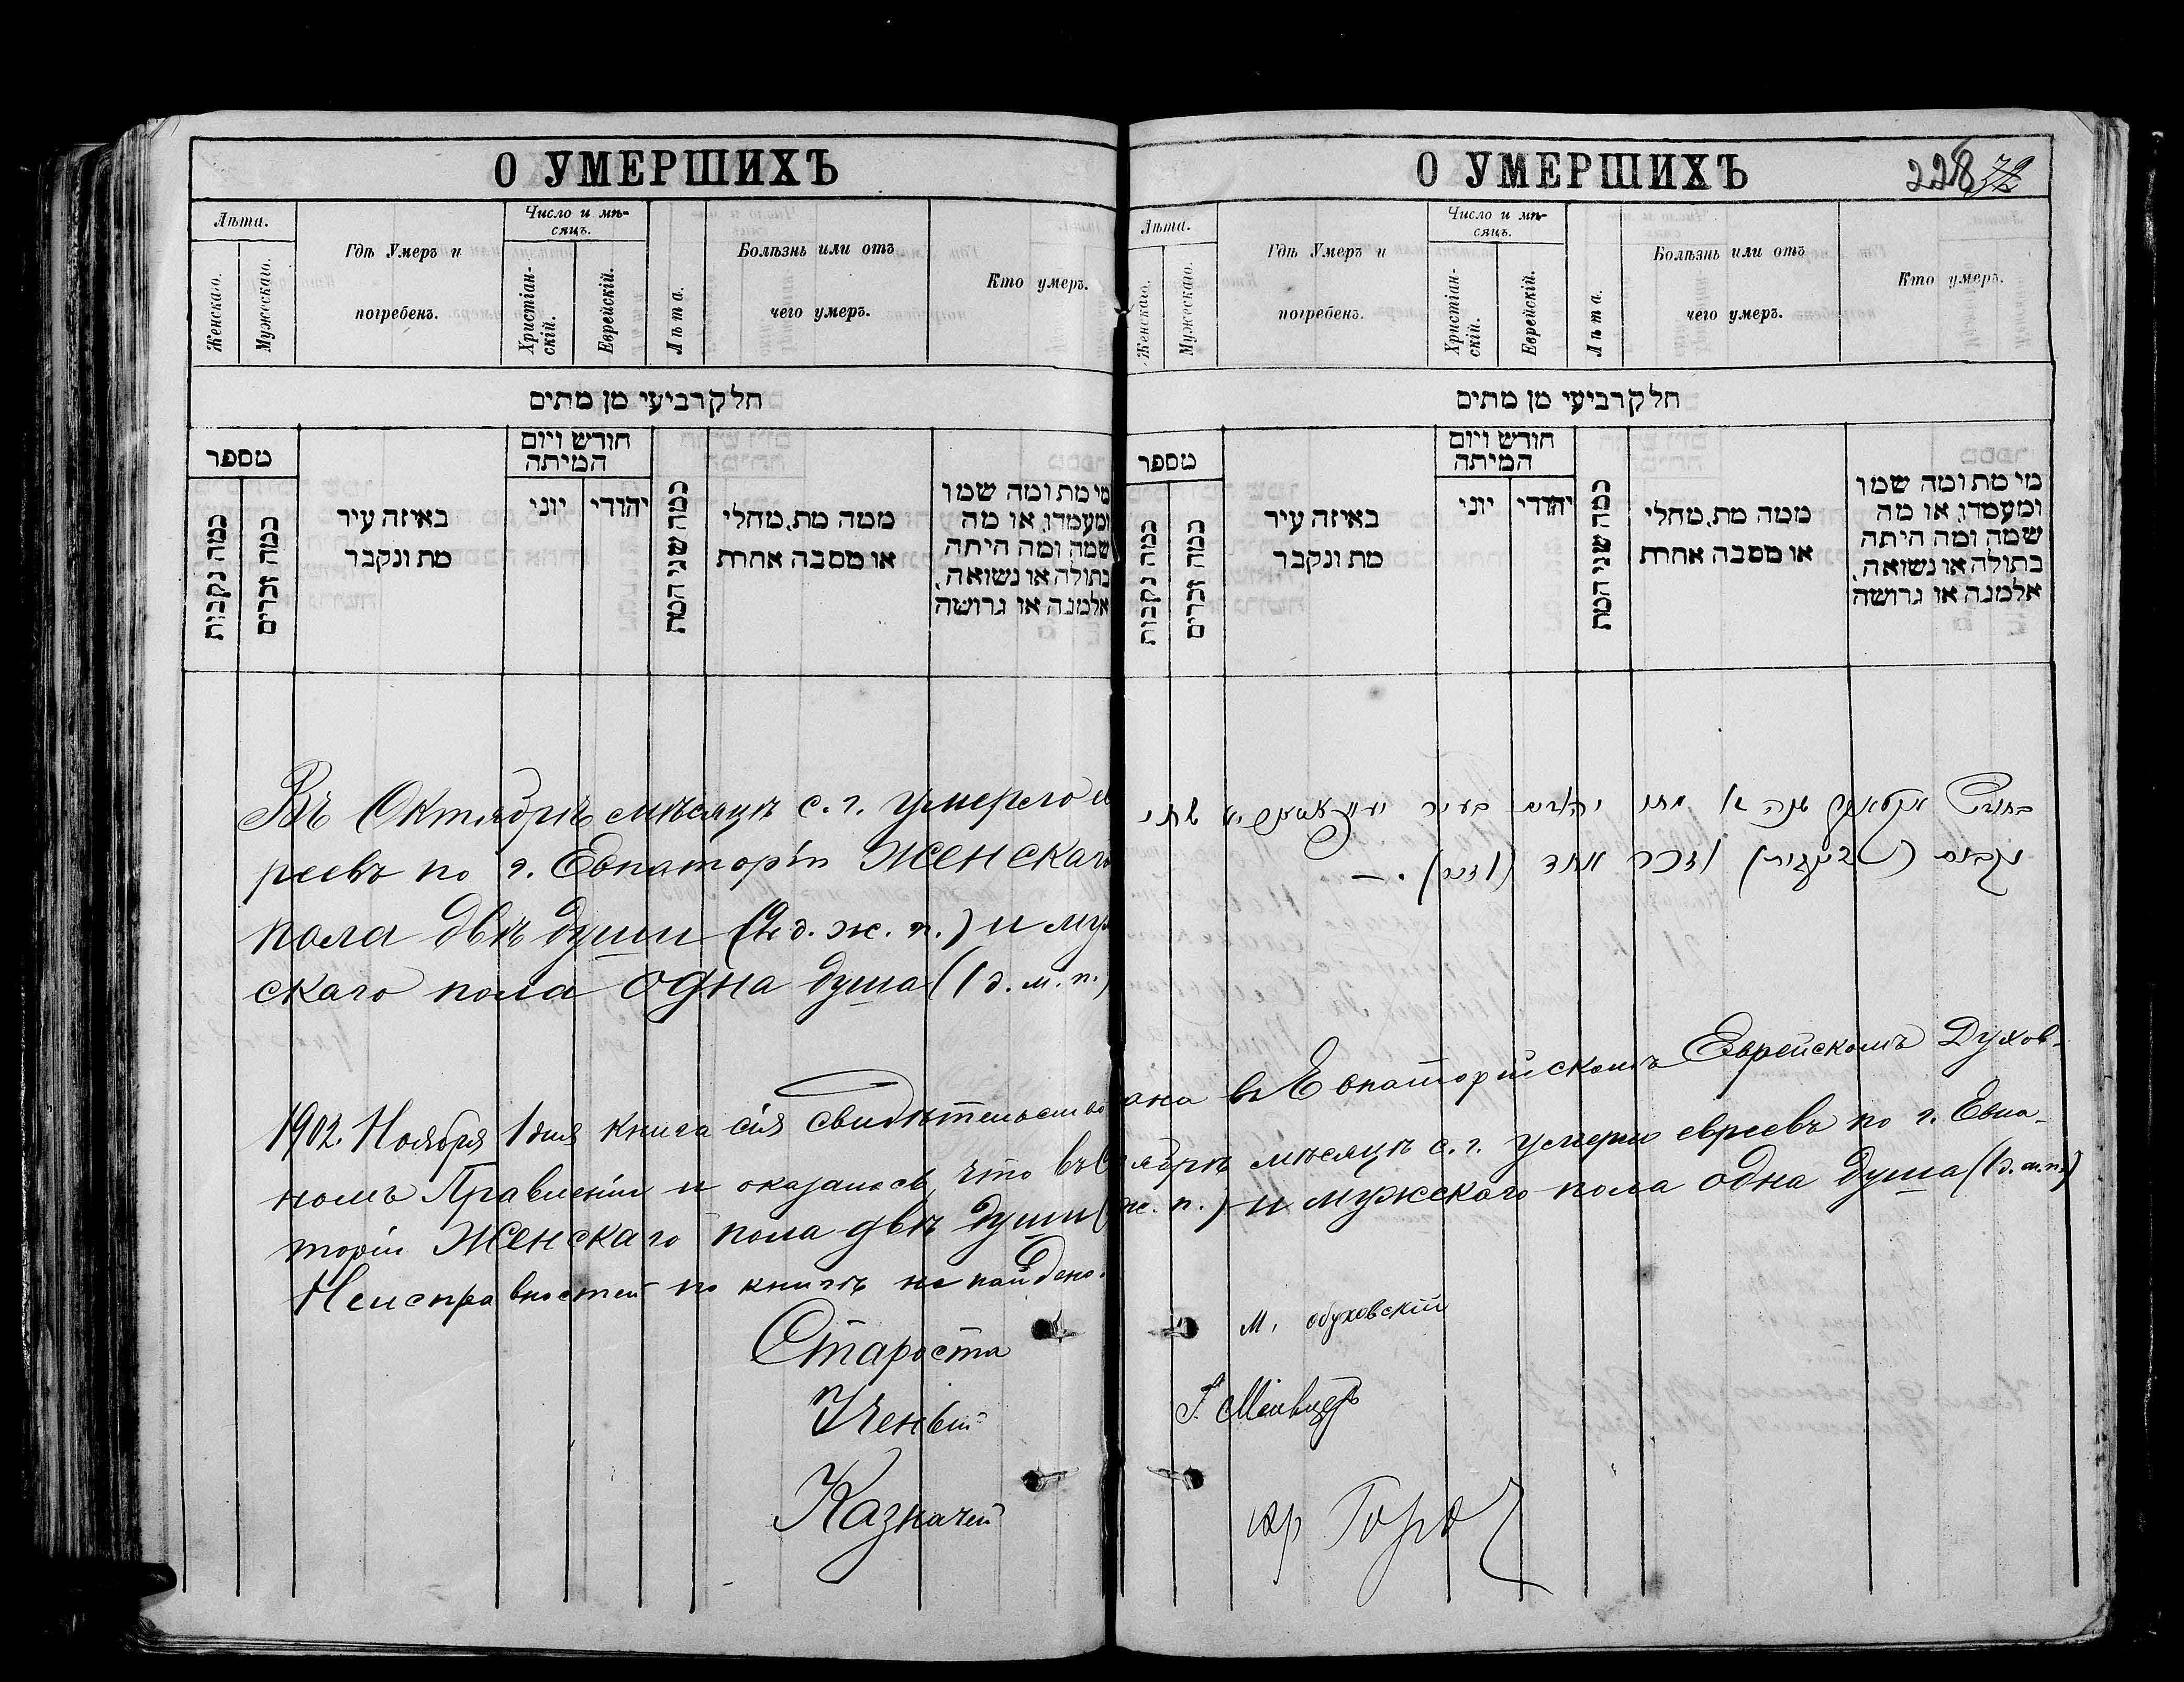 О УМЕРШИХЪ
Лѣта.
Женскаго.
Мужескаго.
Гдѣ Умеръ и
погребенъ.
Число и мѣ-
сяцъ.
Христіан-
скій.
Еврейскій.
Лѣта.
Болѣзнь или отъ
чего умеръ.
Кто умеръ.
חלק רביעי מן מתים
מספר
כמה נקבות
כמה זכרים
באיזה עיר
מת ונקבר
חודש ויום
המיתה
יוני
יהודי
כמה שני המת
ממה מת, מחלי
או מסבה אחרת
מי מת ומה שמו
ומעמדו, או מה
שמה ומה היתה
בתולה או נשואה,
אלמנה או גרושה
Въ Октябрѣ мѣсяцѣ с. г. умерло ев
реевъ по г. Евпаторіи Женскаго
пола двѣ души (2 д. ж. п.) и муж
скаго пола одна душа (1 д. м. п.)
О УМЕРШИХЪ
228 72
Лѣта.
Женскаго.
Мужескаго.
Гдѣ Умеръ и
погребенъ.
Число и мѣ-
сяцъ.
Христіан-
скій.
Еврейскій.
Лѣта.
Болѣзнь или отъ
чего умеръ.
Кто умеръ.
חלק רביעי מן מתים
מספר
כמה נקבות
כמה זכרים
באיזה עיר
מת ונקבר
חודש ויום
המיתה
יוני
יהודי
כמה שני המת
ממה מת, מחלי
או מסבה אחרת
מי מת ומה שמו
ומעמדו, או מה
שמה ומה היתה
בתולה או נשואה,
אלמנה או גרושה
בחודש אקטאבר שנה זו מתו יהודים בעיר שתי
נקבות וזכר אחד
1902. Ноября 1 дня книга сія свидѣтельствована въ Евпаторійскомъ Еврейскомъ Духов-
номъ Правленіи и оказалось, что въ Октябрѣ мѣсяцѣ с. г. умерло евреевъ по г. Евпа-
торіи Женскаго пола двѣ души ( ж. п.) и мужскаго пола одна душа (1 д. м. п.)
Неисправностей по книгѣ не найдено.
Староста М. Обуховскій
Ученый
Казначей